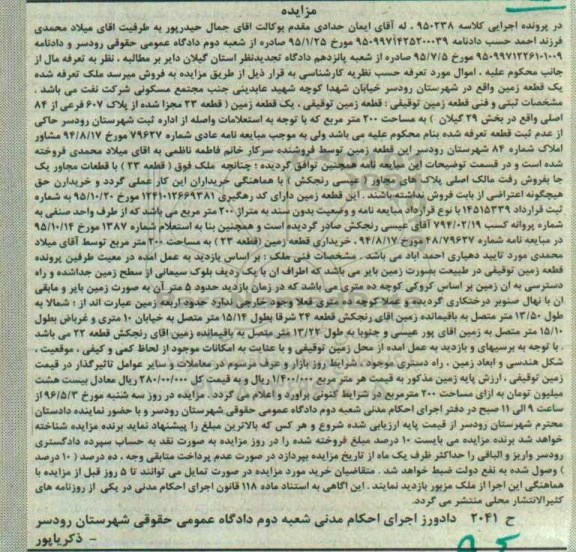 مزایده
در پرونده اجرایی کلاسه ۹۵۰۲۳۸ . له آقای ایمان حدادی مقدم بوکالت اقای جمال حیدرپور به طرفیت اقای میلاد محمدی
فرزند احمد حسب دادنامه ۹۵۰۹۹۷۱۴۲۵۲۰۰۰۳۹ مورخ ۹۵/۱/۲۵ صادره از شعبه دوم دادگاه عمومی حقوقی رودسر و دادنامه
۹۵۰۹۹۷۱۲۲۶۱۰۱۰۰۹ مورخ ۹۵/۷/۵ صادره از شعبه پانزدهم دادگاه تجدیدنظر استان گیلان دایر بر مطالبه ، نظر به تعرفه مال از
جانب محکوم علیه ، اموال مورد تعرفه حسب نظریه کارشناسی به قرار ذیل از طریق مزایده به فروش میرسد ملک تعرفه شده
یک قطعه زمین واقع در شهرستان رودسر خیابان شهدا کوچه شهید عابدینی جنب مجتمع مسکونی شرکت نفت می باشد .
مشخصات ثبتی و فنی قطعه زمین توقیفی : قطعه زمین توقیفی . یک قطعه زمین ( قطعه ۲۳ مجزا شده از پلاک ۶۰۷ فرعی از ۸۴
اصلی واقع در بخش ۲۹ گیلان ) به مساحت ۲۰۰ متر مربع که با توجه به استعلامات واصله از اداره ثبت شهرستان رودسر حاکی
از عدم ثبت قطعه تعرفه شده بنام محکوم علیه می باشد ولی به موجب مبایعه نامه عادی شماره ۷۹۶۳۷ مورخ ۹۴/۸/۱۷ مشاور
املاک شماره ۸۴ شهرستان رودسر این قطعه زمین توسط فروشنده سرکار خانم فاطمه ناظمی به اقای میلاد محمدی فروخته
شده است و در قسمت توضیحات این مبایعه نامه همچنین توافق گردیده : چنانچه ملک فوق ( قطعه ۲۳ ) با قطعات مجاور یک
جا بفروش رفت مالک اصلی پلاک های مجاور ( عیسی رنجکش ) با هماهنگی خریداران این کار عملی گردد و خریدارن حق
هیچگونه اعتراضی از بابت فروش نداشته باشند . این قطعه زمین دارای کد رهگیری ۱۲۴۱۰۱۲۶۶۹۳۸۱ مورخ ۹۵/۱۰/۲۰ به شماره
ثبت قرارداد ۱۴۵۱۵۳۳۹ با نوع قرارداد مبایعه نامه و وضعیت بدون سند به متراژ ۲۰۰ متر مربع می باشد که از طرف واحد صنفی به
شماره پروانه کسب ۷۹۴/۰۲/۱۹ آقای عیسی رنجکش صادر گردیده است و همچنین بنا به استعلام شماره ۱۳۸۷ مورخ ۹۵/۱۰/۱۴
در مبایعه نامه شماره ۴۸/۷۹۶۳۷ مورخ ۹۴/۸/۱۷ . خریداری قطعه زمین (قطعه ۲۳ ) به مساحت ۲۰۰ متر مربع توسط آقای میلاد
محمدی مورد تایید دهیاری احمد اباد می باشد . مشخصات فنی ملک : بر اساس بازدید به عمل امده در معیت طرفین پرونده
قطعه زمین توقیفی در طبیعت بصورت زمین بایر می باشد که اطراف ان با یک ردیف بلوک سیمانی از سطح زمین جداشده و راه
دسترسی به ان زمین بر اساس کروکی کوچه ده متری می باشد که در زمان بازدید حدود ۵ متر آن به صورت زمین بایر و مابقی
ان با نهال صنوبر درختکاری گردیده و عملا کوچه ده متری فعلا وجود خارجی ندارد حدود اربعه زمین عبارت اند از : شمالا به
طول ۱۳/۵۰ متر متصل به باقیمانده زمین اقای رنجکش قطعه ۲۴ شرقا بطول ۱۵/۱۴ متر متصل به خیابان ۱۰ متری و غرباض بطول
۱۵/۱۰ متر متصل به زمین اقای پور عیسی و جنوبا به طول ۱۳/۲۲ متر متصل به باقیمانده زمین اقای رنجکش قطعه ۲۲ می باشد
. با توجه به برسیهای و بازدید به عمل امده از محل زمین توقیفی و با عنایت به امکانات موجود از لحاظ کمی و کیفی ، موقعیت ،
شکل هندسی و ابعاد زمین ، راه دستری موجود ، شرایط روز بازار و عرف مرسوم در معاملات و سایر عوامل تاثیرگذار در قیمت
زمین توقیفی ، ارزش پایه زمین مذکور به قیمت هر متر مربع ۱/۴۰۰/۰۰۰ ریال و به قیمت کل ۲۸۰/۰۰/۰۰۰ ریال معادل بیست هشت
میلیون تومان به ازای مساحت ۲۰۰ مترمربع در شرایط کنونی براورد و اعلام می گردد . مزایده در روز سه شنبه مورخ ۹۶/۵/۳ از
ساعت ۹ الی ۱۱ صبح در دفتر اجرای احکام مدنی شعبه دوم دادگاه عمومی حقوقی شهرستان رودسر و با حضور نماینده دادستان
محترم شهرستان رودسر از قیمت پایه ارزیابی شده شروع و هر کس که بالاترین مبلغ را پیشنهاد نماید برنده مزایده شناخته
خواهد شد برنده مزایده می بایست ۱۰ درصد مبلغ فروخته شده را در روز مزایده به صورت نقد به حساب سپرده دادگستری
رودسر واریز و الباقی را حداکثر ظرف یک ماه از تاریخ مزایده بپردازد در صورت عدم پرداخت متابقی وجه ، ده درصد ( ۱۰ درصد
) وصول شده به نفع دولت ضبط خواهد شد . متقاضیان خرید مورد مزایده در صورت تمایل می توانند تا ۵ روز قبل از مزایده با
هماهنگی این اجرا از ملک مزبور بازدید نمایند . این اگاهی به استناد ماده ۱۱۸ قانون اجرای احکام مدنی در یکی از روزنامه های
کثیرالانتشار محلی منتشر می گردد.
ح ۲۰۴۱ دادورز اجرای احکام مدنی شعبه دوم دادگاه عمومی حقوقی شهرستان رودسر
- ذکریاپور